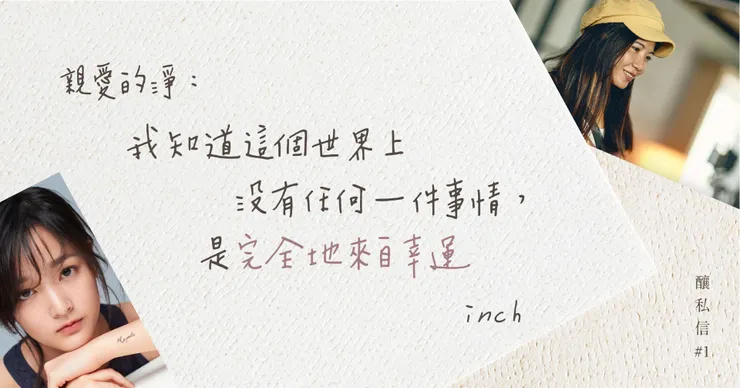 親愛的淨：
我知道這個世界上
沒有任何一件事情，
是完全地來自幸運
inch
釀私信
#1